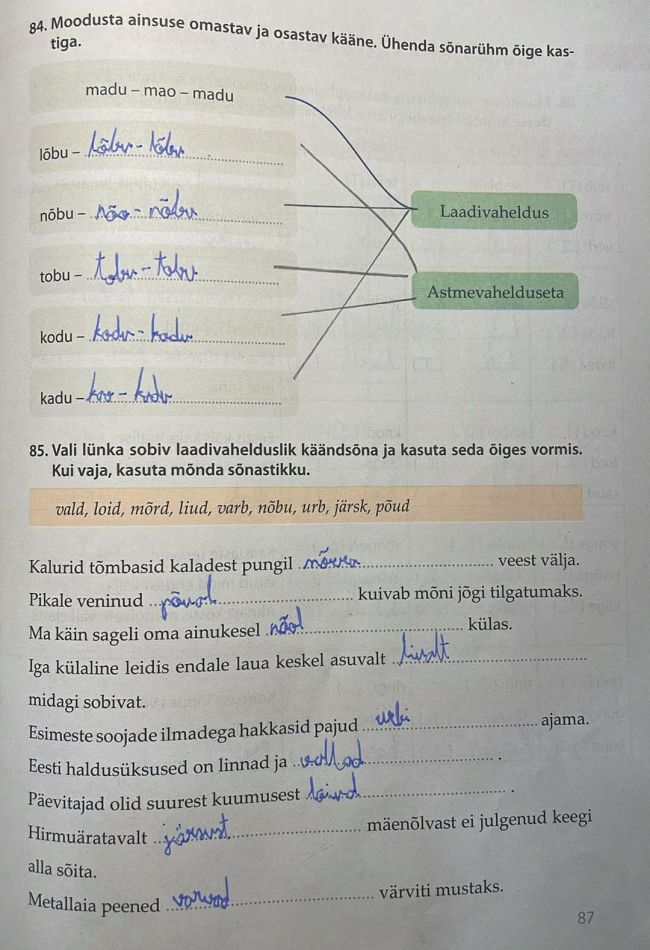 84. Moodusta ainsuse omastav ja osastav kääne. Ühenda sõnarühm õige kas-
tiga.
madu – mao – madu
lõbu – lõbu - lõbu
nõbu – nõo - nõbu
tobu – tobu - tobu
kodu – kodu - kodu
kadu – kao - kadu
Laadivaheldus
Astmevahelduseta
85. Vali lünka sobiv laadivahelduslik käändsõna ja kasuta seda õiges vormis.
Kui vaja, kasuta mõnda sõnastikku.
vald, loid, mõrd, liud, varb, nõbu, urb, järsk, põud
Kalurid tõmbasid kaladest pungil mõrra veest välja.
Pikale veninud põual kuivab mõni jõgi tilgatumaks.
Ma käin sageli oma ainukesel nõol külas.
Iga külaline leidis endale laua keskel asuvalt liualt
midagi sobivat.
Esimeste soojade ilmadega hakkasid pajud urbi ajama.
Eesti haldusüksused on linnad ja vallad .
Päevitajad olid suurest kuumusest loiud .
Hirmuäratavalt järsust mäenõlvast ei julgenud keegi
alla sõita.
Metallaia peened varvad värviti mustaks.
87